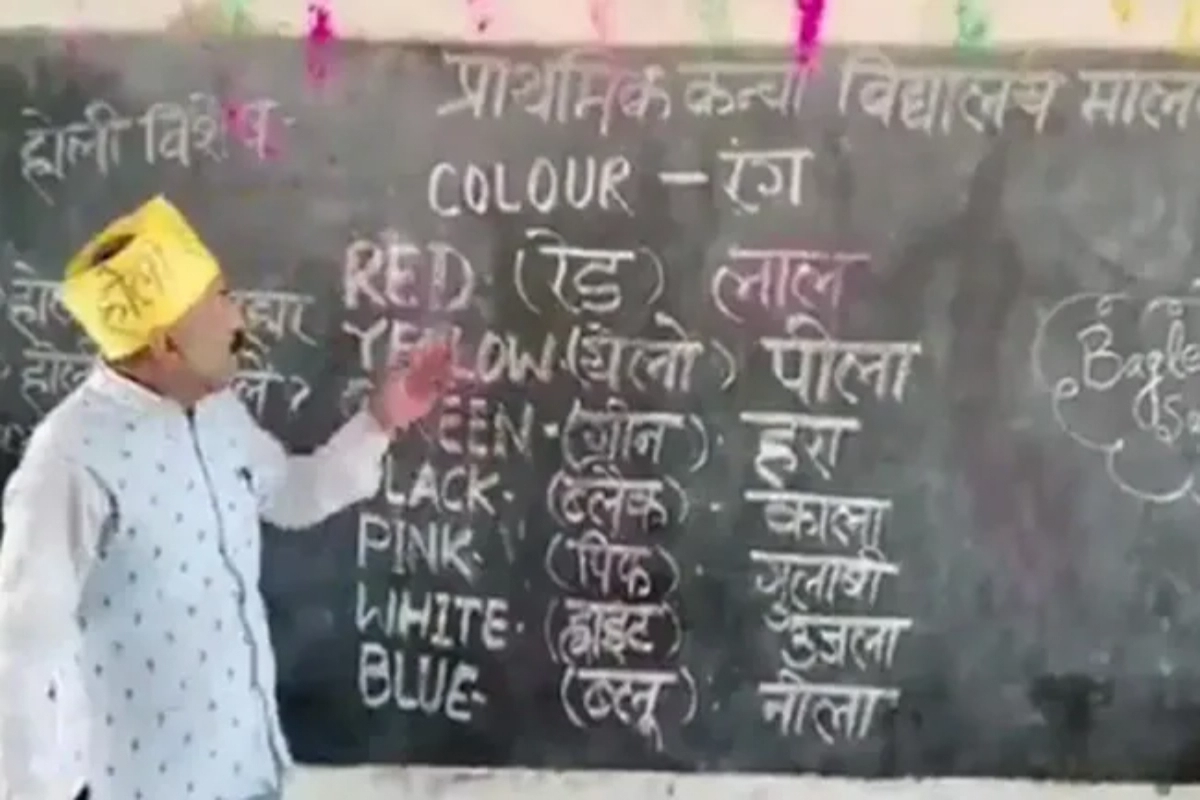 प्राथमिक कन्या विद्यालय माल
होली विशेष
COLOUR - रंग
RED (रेड) लाल
YELLOW (येलो) पीला
GREEN - (ग्रीन) हरा
BLACK - (ब्लैक) - काला
PINK - (पिंक) - गुलाबी
WHITE - (ह्वाइट) उजला
BLUE - (ब्लू) - नीला
होली
Bagle